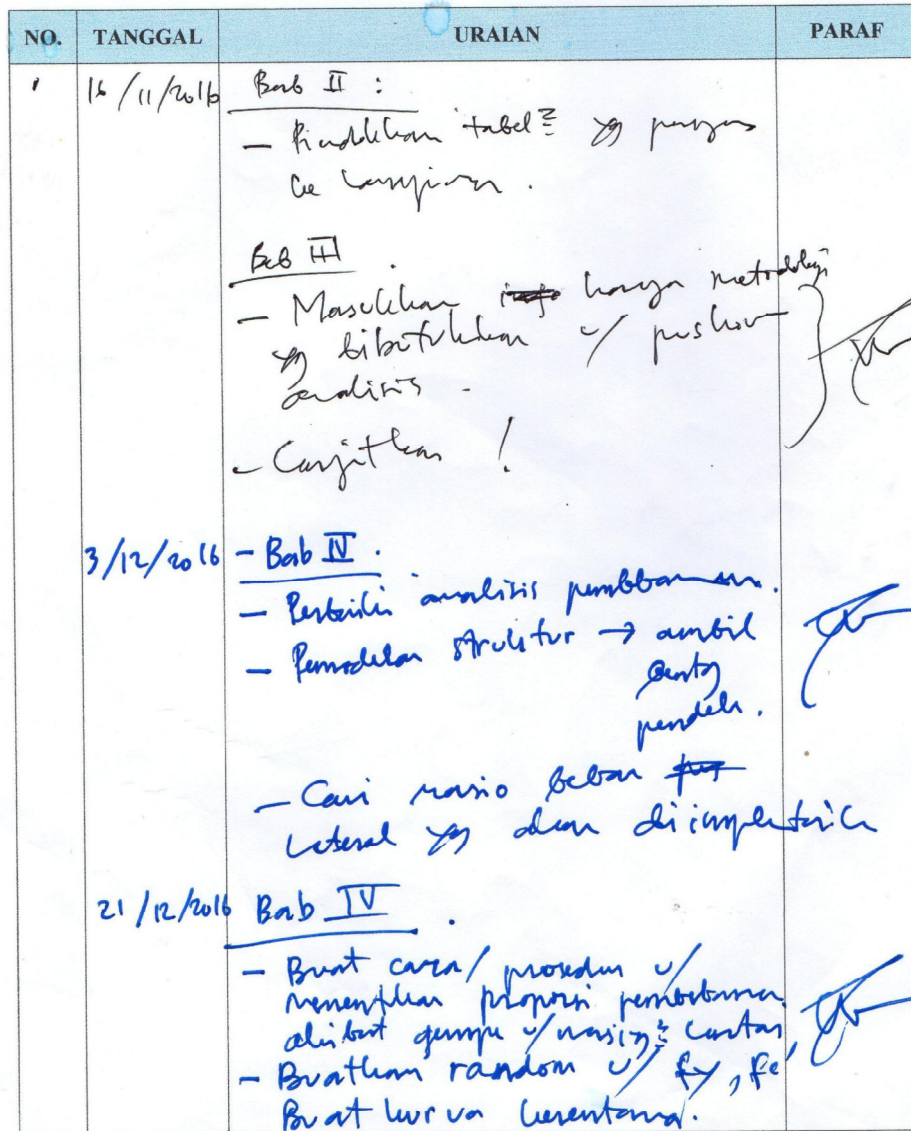 NO. TANGGAL URAIAN PARAF
16/11/2016 Bab II :
- Pindahkan tabel² yg
ke lampiran.
Bab III.
- Masukkan hanya metodologi
yg dibutuhkan u/ pushover
analisis.
- Lanjutkan !
3/12/2016 - Bab IV.
- Perbaiki analisis pembebanan.
- Pemodelan struktur → ambil
yg
pendek.
- Cari rasio beban
lateral yg akan di
21/12/2016 Bab IV.
- Buat cara/ prosedur u/
menentukan proporsi pembebanan
akibat gempa u/ masing² lantai
- Buatkan random u/ fy, fc'
Buat kurva kerentanan.